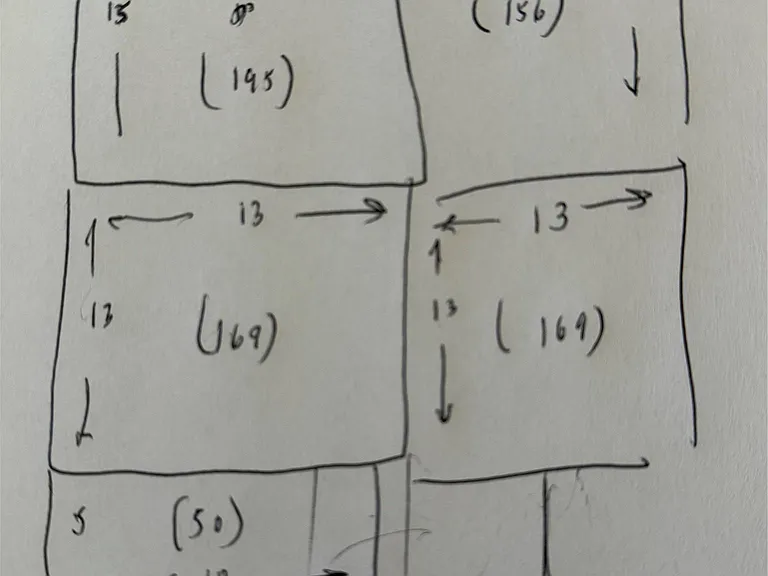 15
(156)
(195)
13
13
13
(169)
13
(169)
5
(50)